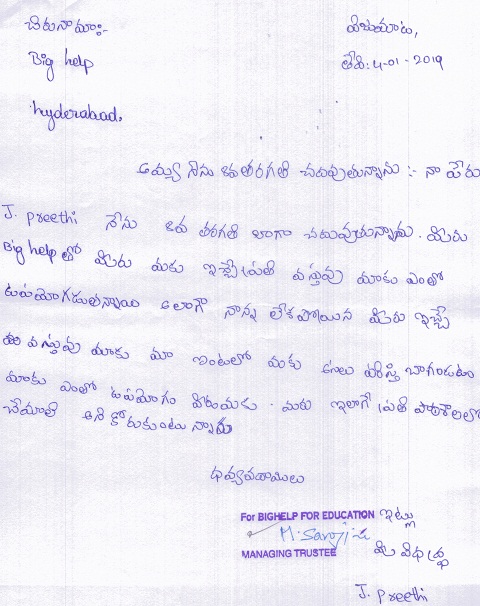 చిరునామా:-
విజయవాడ,
Big help
తేది: 4-01-2019
hyderabad,
అమ్మ నేను 8వ తరగతి చదువుతున్నాను :- నా పేరు
J. preethi నేను 8వ తరగతి లాగా చదువుతున్నాను. మీరు
Big help లో మీరు మకు ఇచ్చే ప్రతి వస్తువు మాకు ఎంతో
ఉపయోగడుతున్నాయి అలాగే నాన్న లేక పోయిన మీరు ఇచ్చే
వస్తువు మాకు మా ఇంటలో మకు అసలు పరిస్తి బాగండటం
మాకు ఎంతో ఉపయోగం మరు ఇలాగే ప్రతి పాఠశాలలో
చేయాలి అని కోరుకుంటున్నాను
ధన్యవాదములు
For BIGHELP FOR EDUCATION ఇట్లు
M. Saroji
MANAGING TRUSTEE మీ విధ్యర్థి
J. Preethi